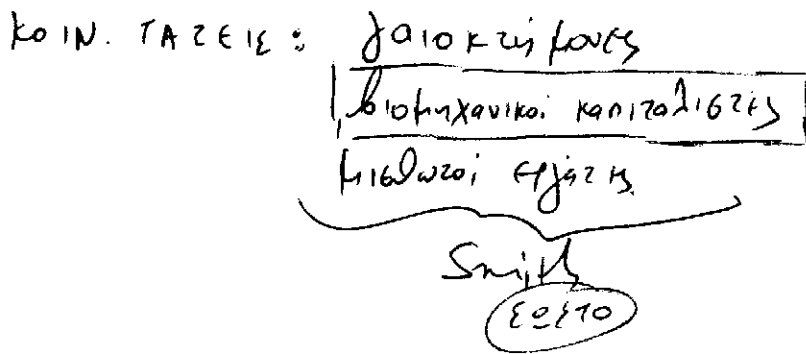 ΚΟΙΝ. ΤΑΞΕΙΣ: γαιοκτήμονες
βιομηχανικοί καπιταλιστές
μισθωτοί εργάτες
Smith
ΣΩΣΤΟ